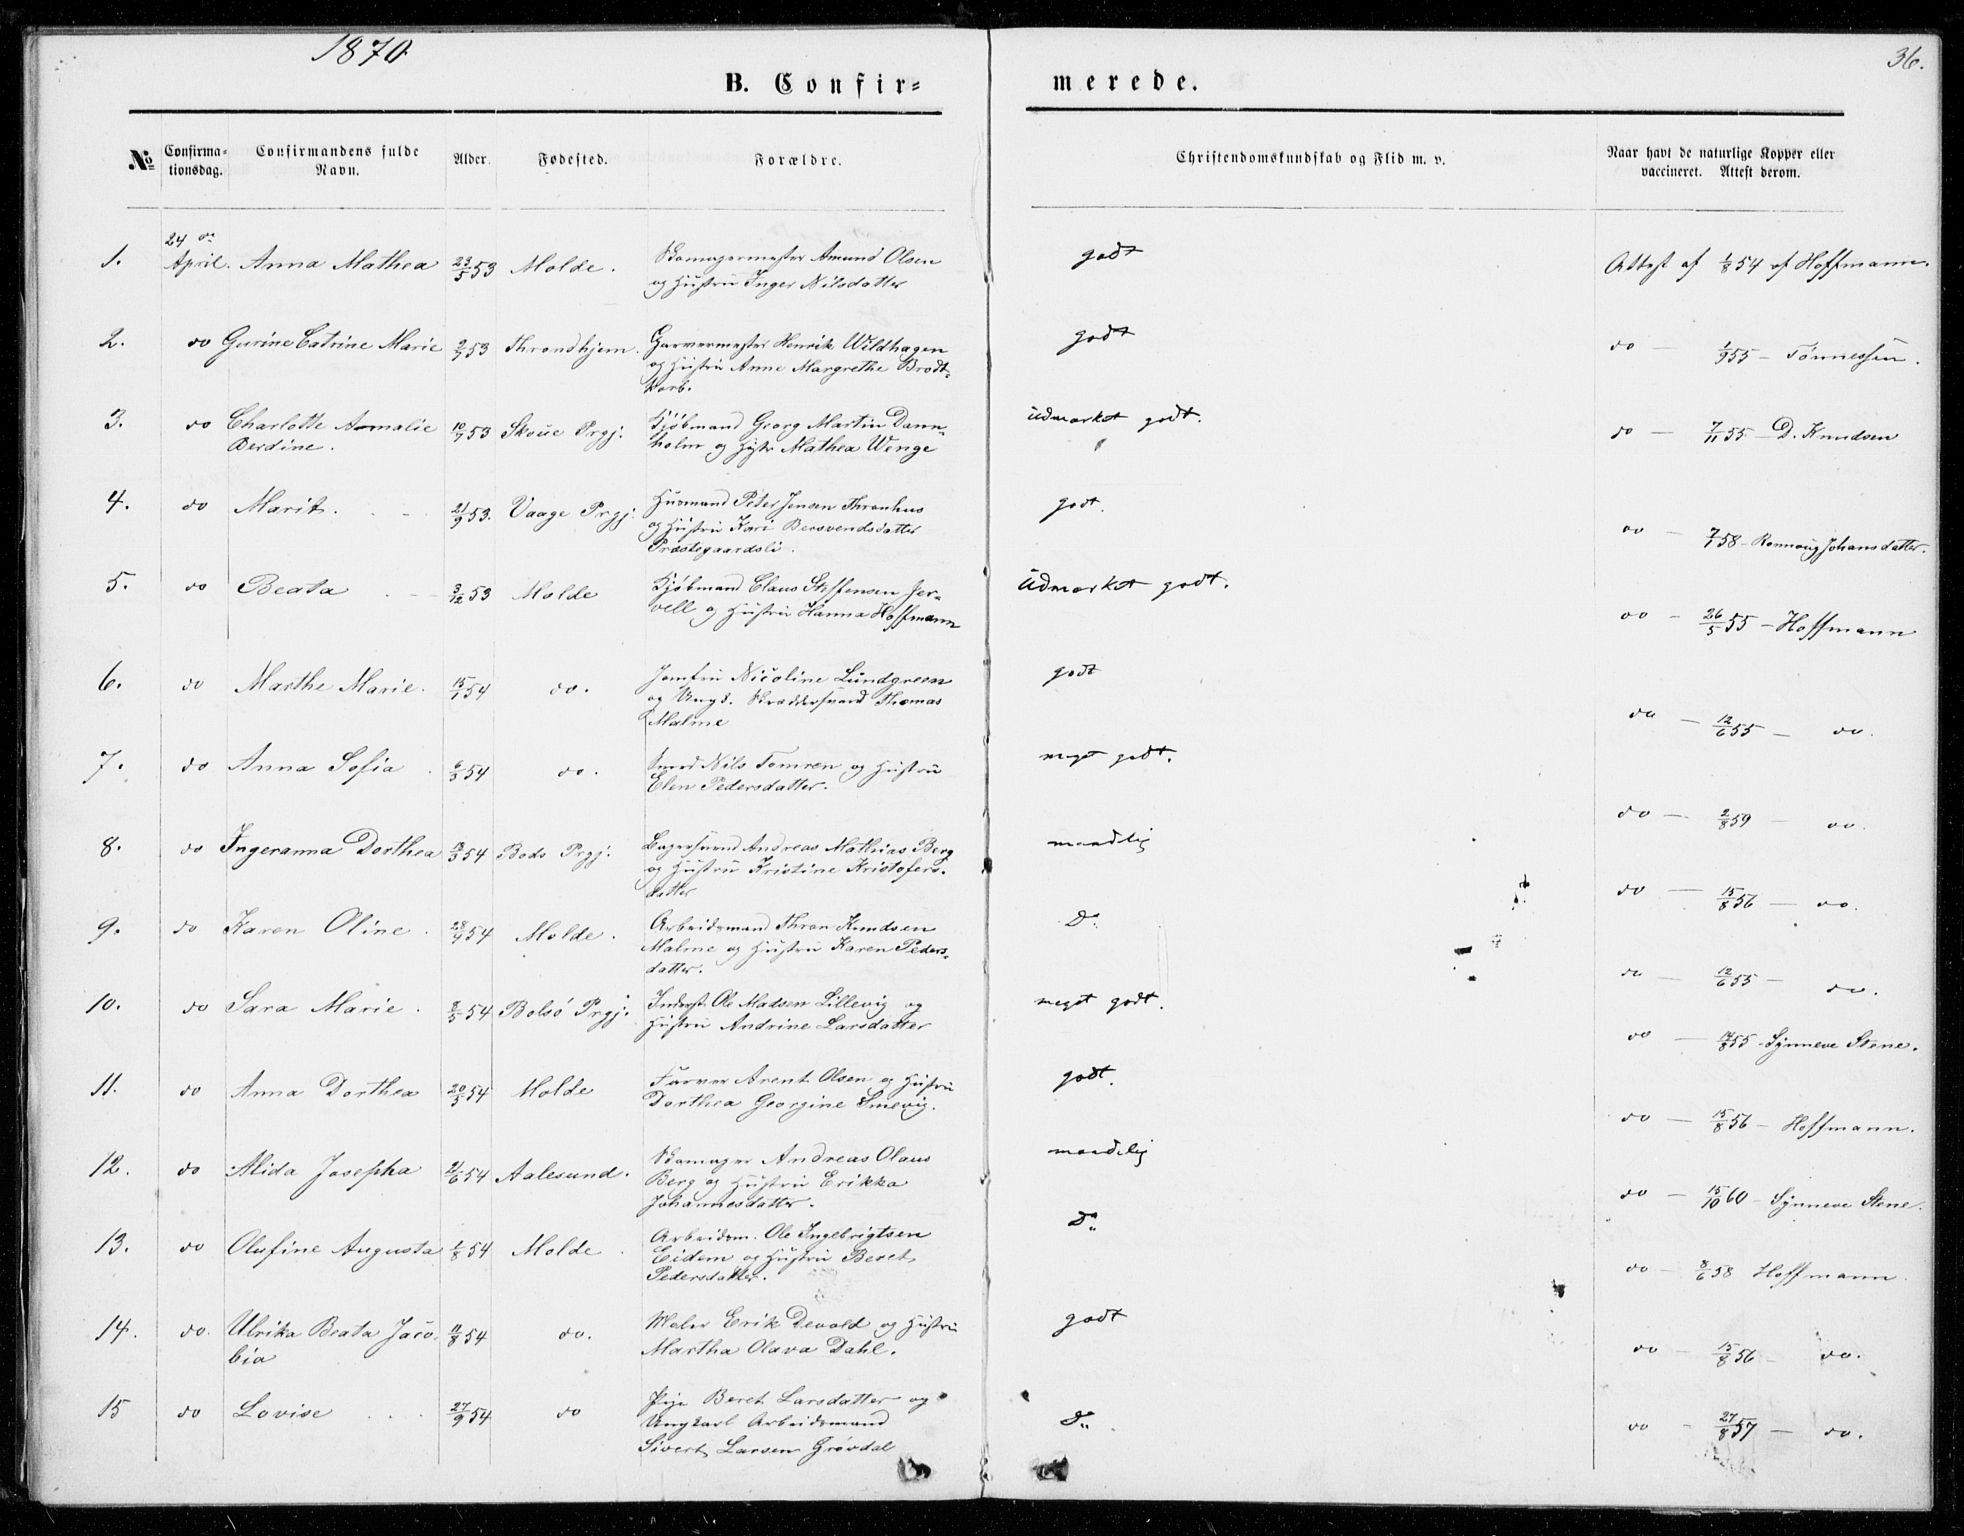 1870
36.
B. Confir=
merede.
No
Confirma=
tionsdag.
Confirmandens fulde
Navn.
Alder.
Fødested.
Forældre.
Christendomskundskab og Flid m. v.
Naar havt de naturlige Kopper eller
vaccineret. Attest derom.
1. 24de April. Anna Mathea 23/5 53 Molde. Skomagermester Amund Olsen
og Hustru Inger Nilsdatter
godt
Attest af 1/8 54 af Hoffmann.
2. do Gurine Catrine Marie 2/7 53 Throndhjem. Garvermester Henrik Wildhagen
og Hustru Anne Margrethe Brodt=
korb.
godt
do — 1/9 55 — Tønnessen.
3. do Charlotte Amalie 10/7 53 Skoue Prgj. Kjøbmand Georg Martin Dann=
Berdine. holm og Hustr Mathea Wenge
udmærket godt.
do — 7/11 55 — D. Knudsen
4. do Marit. 21/9 53. Vaage Prgj. Husmand Peter Jensen Thronhus
og Hustru Kari Bersvendsdatter
Præstegaardsli.
godt.
do — 7/1 58 - Rønnoug Johansdatter.
5. do Beata 3/12 53 Molde Kjøbmand Claus Steffensen Jer=
vell og Hustru Hanna Hoffmann
udmærket godt.
do - 26/5 55 — Hoffmann
6. do Marthe Marie. 15/1 54 do. Jomfru Nicoline Lundgreen
og Ungk. Skræddersvend Thomas
Malme
godt
do — 12/6 55 — do.
7. do Anna Sofia 6/3 54 do. Smed Nils Tomren og Hustru
Elen Pedersdatter.
meget godt.
do — 2/8 59 — do.
8. do Ingeranna Dorthea 13/3 54 Bods Prgj. Bagersvend Andreas Mathias Berg
og Hustru Kristine Kristofers.
datter
maadelig
do — 15/8 56 — do.
9. do Karen Oline. 28/4 54 Molde. Arbeidsmand Thron Knudsen
Malme og Hustru Karen Peders=
datter.
Do
do — 12/6 55 — do.
10. do Sara Marie. 8/5 54 Bolsø Prgj. Inderst Ole Madsen Lillevig og
Hustru Andrine Larsdatter
meget godt.
do — 14/8 55 - Synneve Stene.
11. do Anna Dorthea 20/5 54 Molde Farver Arent Olsen og Hustru
Dorthea Georgine Smevig.
godt.
do — 15/8 56 — Hoffmann.
12. do Alida Josepha 21/6 54 Aalesund. Skomager Andreas Olaus
Berg og Hustru Erikka
Johannesdatter.
maadelig
do — 15/10 60 — Synneve Stene.
13. do Olufine Augusta 1/8 54 Molde. Arbeidsm. Ole Ingebrigtsen
Eidem og Hustru Beret
Pedersdatter.
Do
do — 8/6 58 Hoffmann.
14. do. Ulrika Beata Jaco- 11/8 54 do. Maler Erik Devold og Hustru
bia Martha Olava Dahl.
godt
do — 15/8 56 — do.
15 do Lovise 27/9 54 do Pige Beret Larsdatter og
Ungkarl Arbeidsmand
Sivert Larsen Grøvdal
Do
do — 27/8 57 — do.